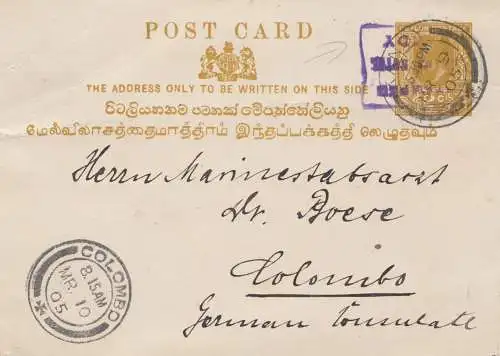 POST CARD
THE ADDRESS ONLY TO BE WRITTEN ON THIS SIDE
විටලියනකම පටනක් මෙපැත්තේලියනු
மேல்விலாசத்தைமாத்திரம் இந்தப்பக்கத்தி லெழுதவும்
Herrn Marinestabsarzt
Dr. Boese
Colombo
German Consulate
COLOMBO
8.15AM
MR 10
05